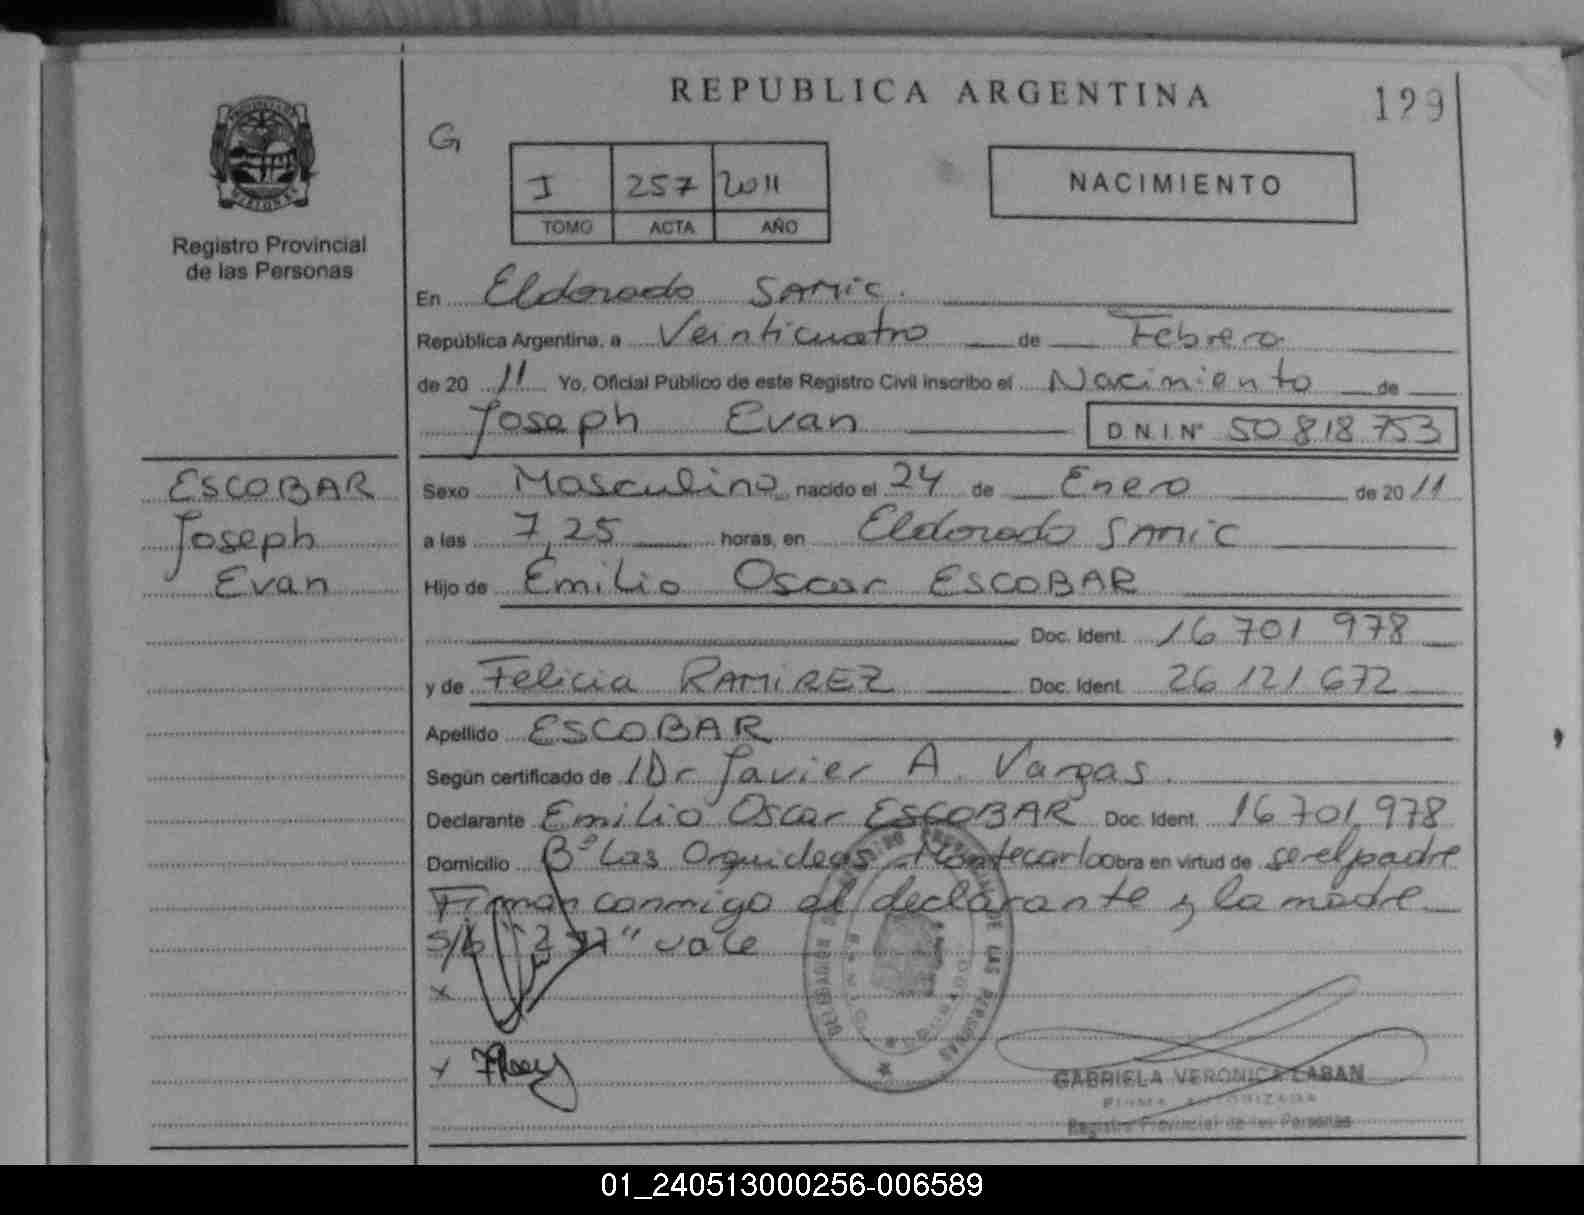 REPUBLICA ARGENTINA
129
G
I 257 2011
TOMO ACTA AÑO
NACIMIENTO
Registro Provincial
de las Personas
En Eldorado SAMIC.
República Argentina, a Veinticuatro de Febrero
de 20 11 Yo, Oficial Público de este Registro Civil inscribo el Nacimiento de
Joseph Evan D.N.I.Nº 50 818 753
ESCOBAR
Joseph
Evan
Sexo Masculino nacido el 24 de Enero de 20 11
a las 7,25 horas, en Eldorado SAMIC
Hijo de Emilio Oscar ESCOBAR
Doc. Ident. 16 701 978
y de Felicia RAMIREZ Doc. Ident. 26 121 672
Apellido ESCOBAR
Según certificado de Dr Javier A. Vargas.
Declarante Emilio Oscar ESCOBAR Doc. Ident. 16 701 978
Domicilio Bº Las Orquideas Montecarlo obra en virtud de ser el padre
Firman conmigo el declarante y la madre
S/b "257" vale
x
x
DE LAS PERSONAS
GABRIELA VERONICA LABAN
FIRMA AUTORIZADA
Registro Provincial de las Personas
01_240513000256-006589